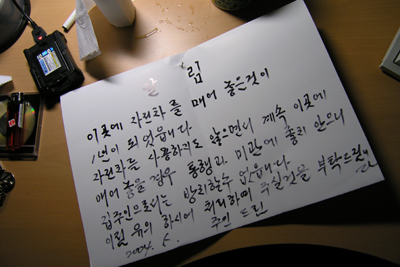 알 림
이곳에 자전차를 매어 놓은것이
1년이 되었읍니다.
자전차를 사용하지도 않으면서 계속 이곳에
매어 놓을 경우 통행과 미관에 좋치 안으니
집주인으로서는 방치할수 없읍니다.
이점 유의 하시어 처리하여 주실것을 부탁드립니다
2004. 6. 주인 드림